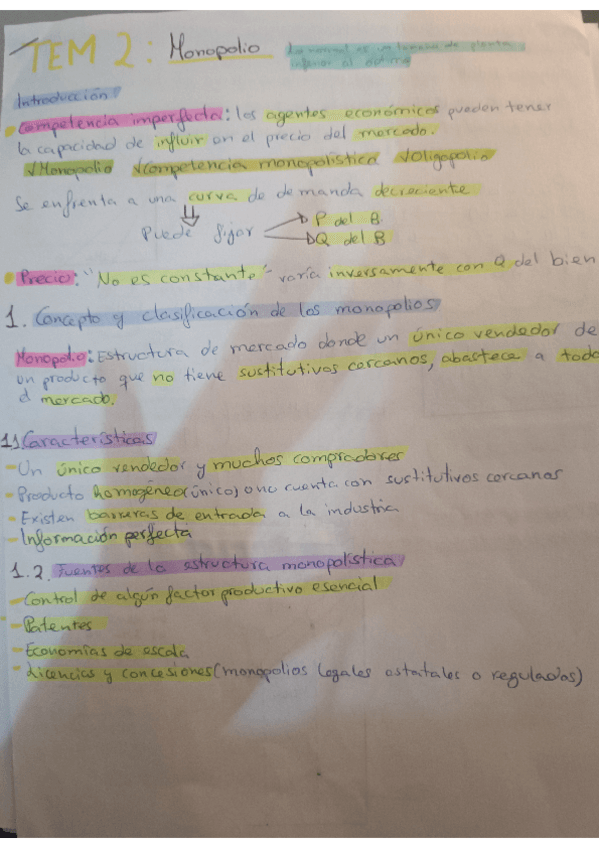 TEM 2: Monopolio
Lo normal es un tamaño de planta
inferior al óptimo
Introducción
Competencia imperfecta: los agentes económicos pueden tener
la capacidad de influir en el precio del mercado.
√Monopolio √Competencia monopolística √Oligopolio
Se enfrenta a una curva de demanda decreciente
Puede fijar
P del B.
Q del B
Precio: "No es constante" varía inversamente con Q del bien
1. Concepto y clasificación de los monopolios
Monopolio: Estructura de mercado donde un único vendedor de
un producto que no tiene sustitutivos cercanos, abastece a todo
el mercado.
1.1 Características
- Un único vendedor y muchos compradores
- Producto homogéneo (único) o no cuenta con sustitutivos cercanos
- Existen barreras de entrada a la industria
- Información perfecta
1.2. Fuentes de la estructura monopolística
- Control de algún factor productivo esencial
- Patentes
- Economías de escala
- Licencias y concesiones (monopolios legales estatales o regulados)